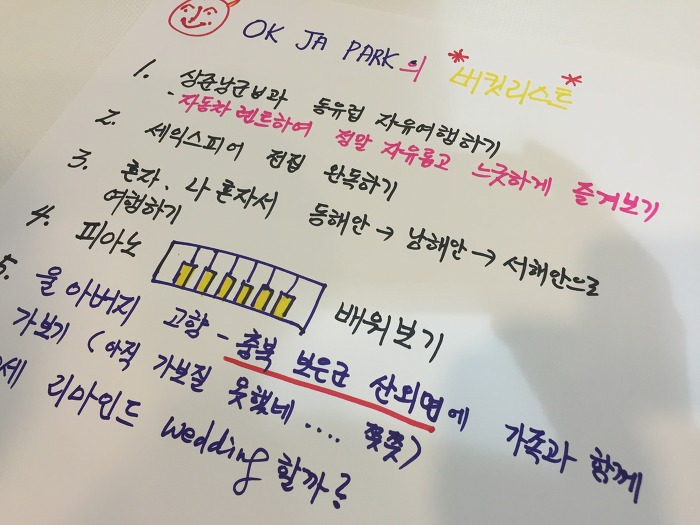 OK JA PARK의 *버킷리스트*
1. 상준남군B과 동유럽 자유여행하기
- 자동차 렌트하여 정말 자유롭고 느긋하게 즐겨보기
2. 세익스피어 전집 완독하기
3. 혼자. 나 혼자서 동해안 → 남해안 → 서해안으로
여행하기
4. 피아노 배워보기
5. 울 아버지 고향 - 충북 보은군 산외면에 가족과 함께
가보기 (아직 가보질 못했네.... 쯧쯧)
세 리마인드 wedding 할까?